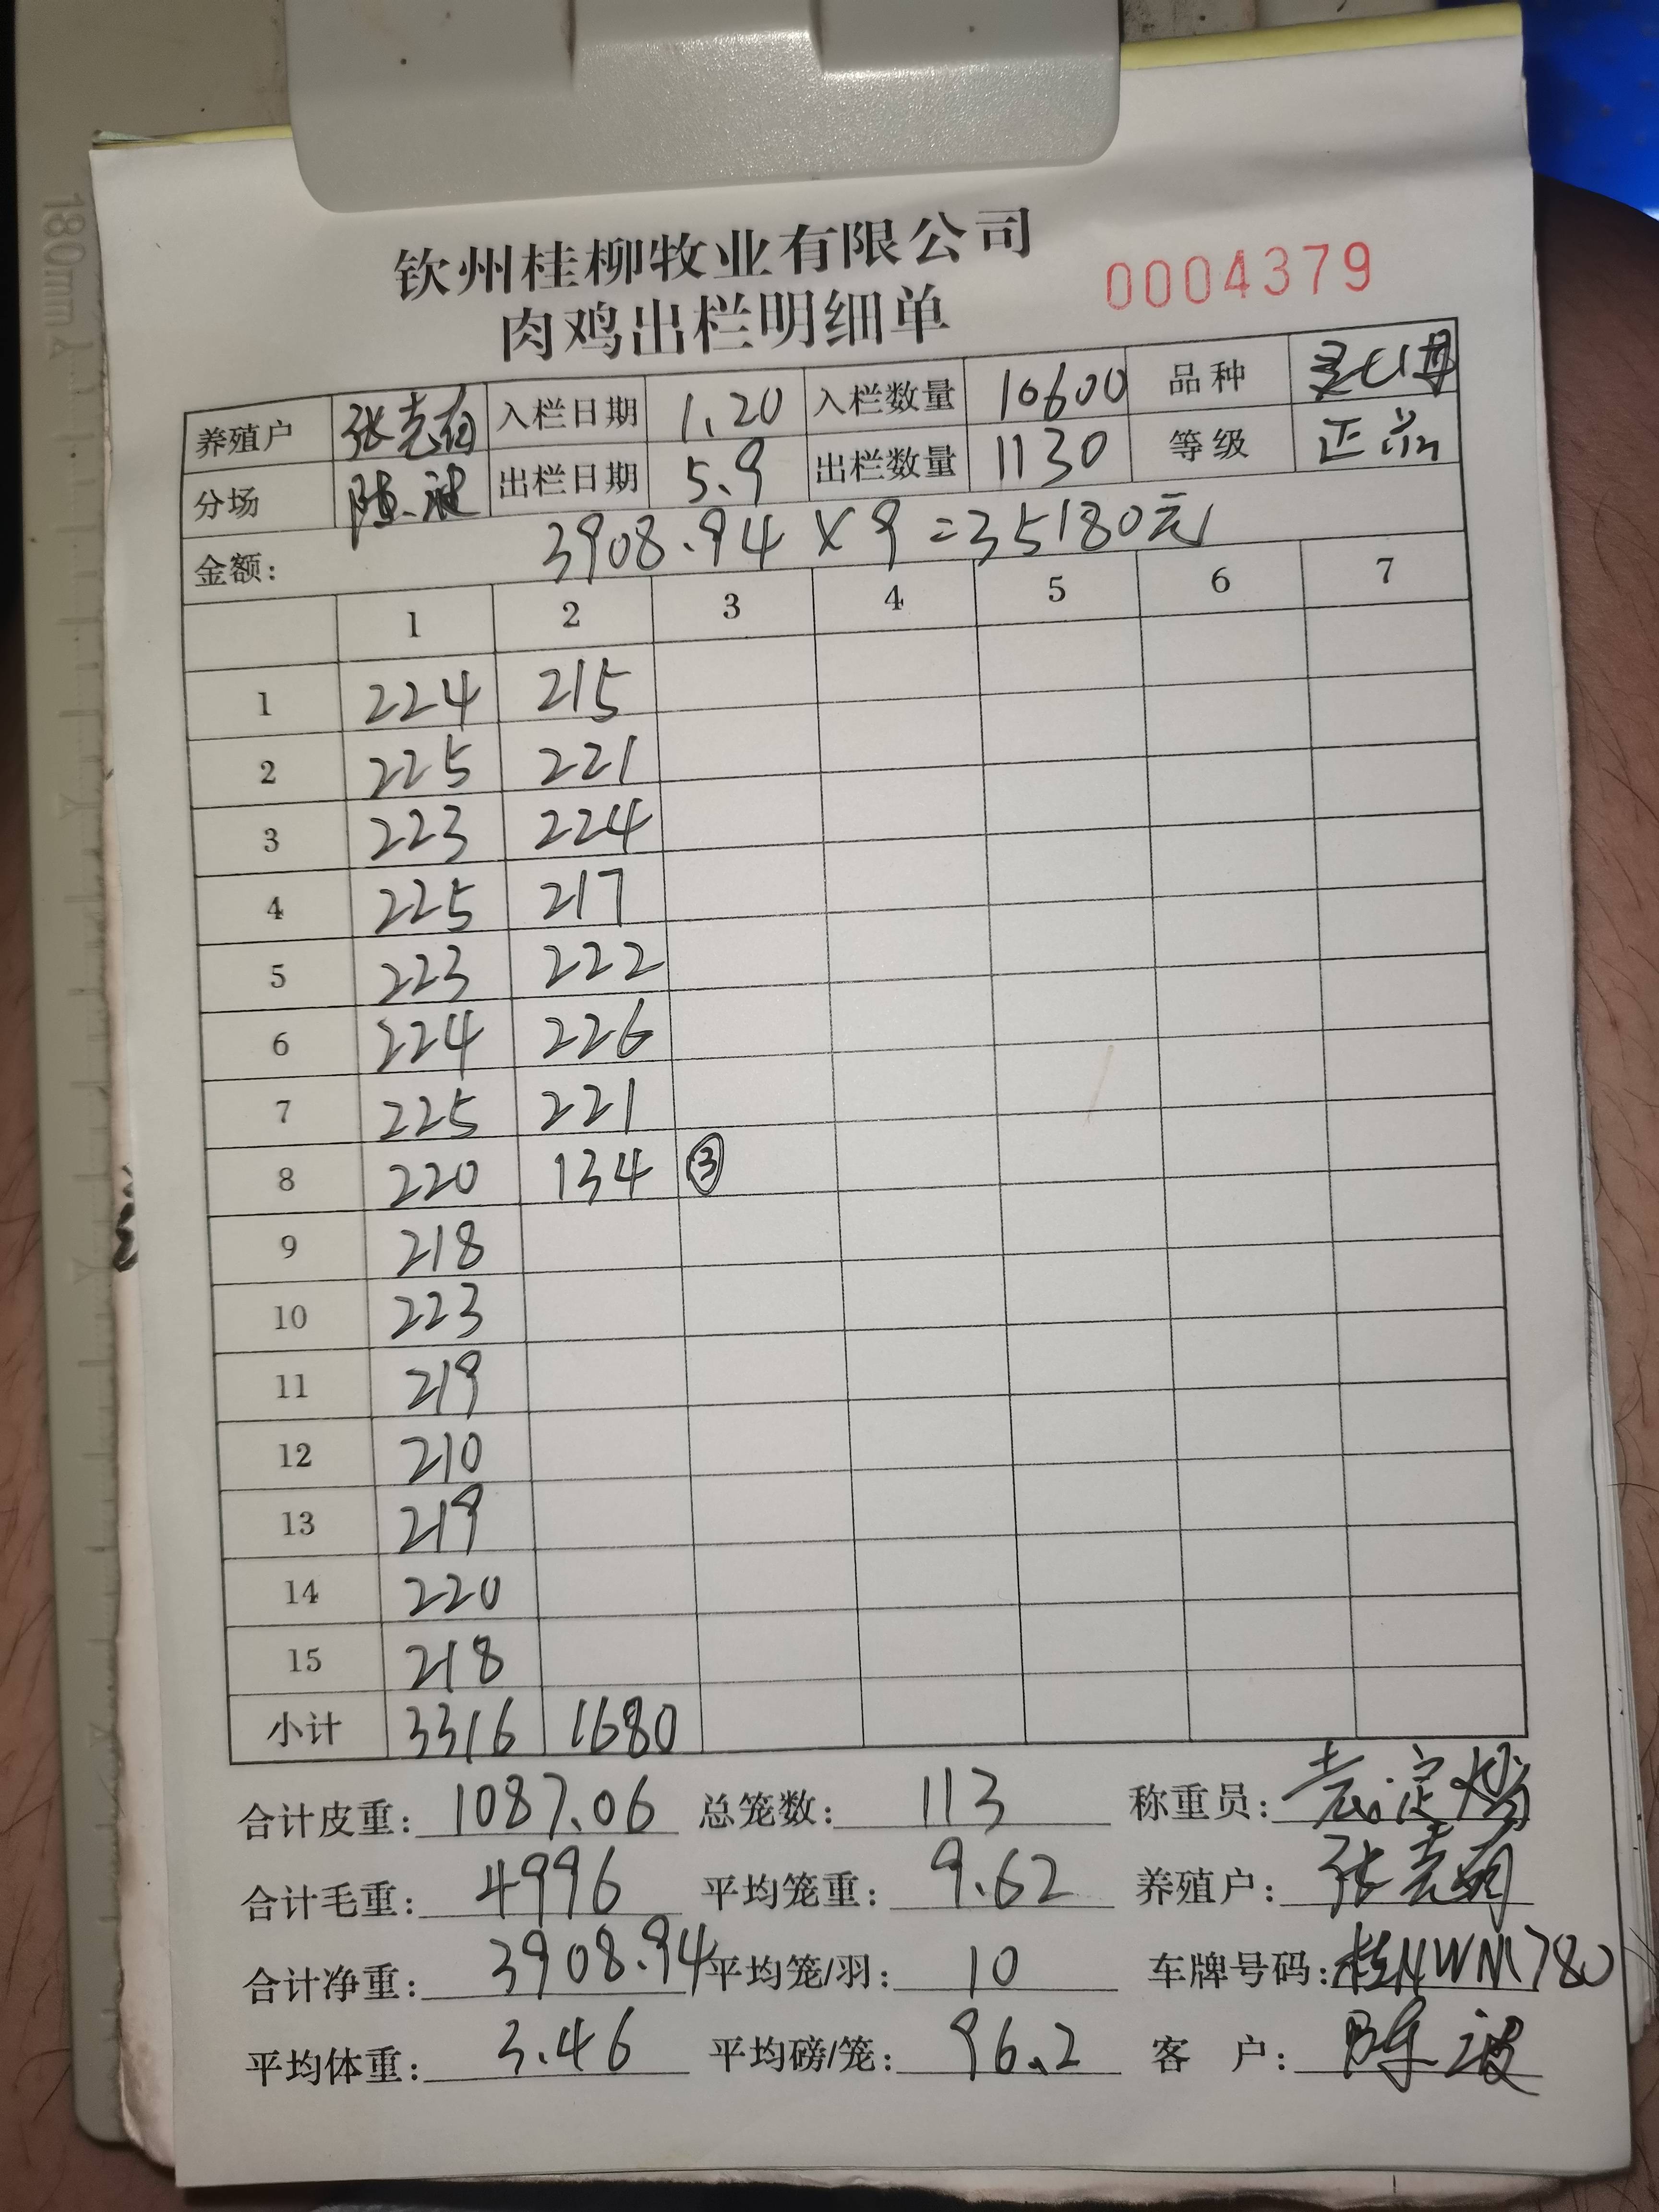 180mm
钦州桂柳牧业有限公司
0004379
肉鸡出栏明细单
养殖户 张 入栏日期 1.20 入栏数量 10600 品种
分场 陈波 出栏日期 5.9 出栏数量 1130 等级 正前
金额: 3908.94 × 9 = 35180元
1 2 3 4 5 6 7
1 224 215
2 225 221
3 223 224
4 225 217
5 223 222
6 224 226
7 225 221
8 220 134 ③
9 218
10 223
11 219
12 210
13 219
14 220
15 218
小计 3316 1680
合计皮重: 1087.06 总笼数: 113 称重员:
合计毛重: 4996 平均笼重: 9.62 养殖户: 张
合计净重: 3908.94 平均笼/羽: 10 车牌号码: 桂NWM780
平均体重: 3.46 平均磅/笼: 96.2 客户: 陈波